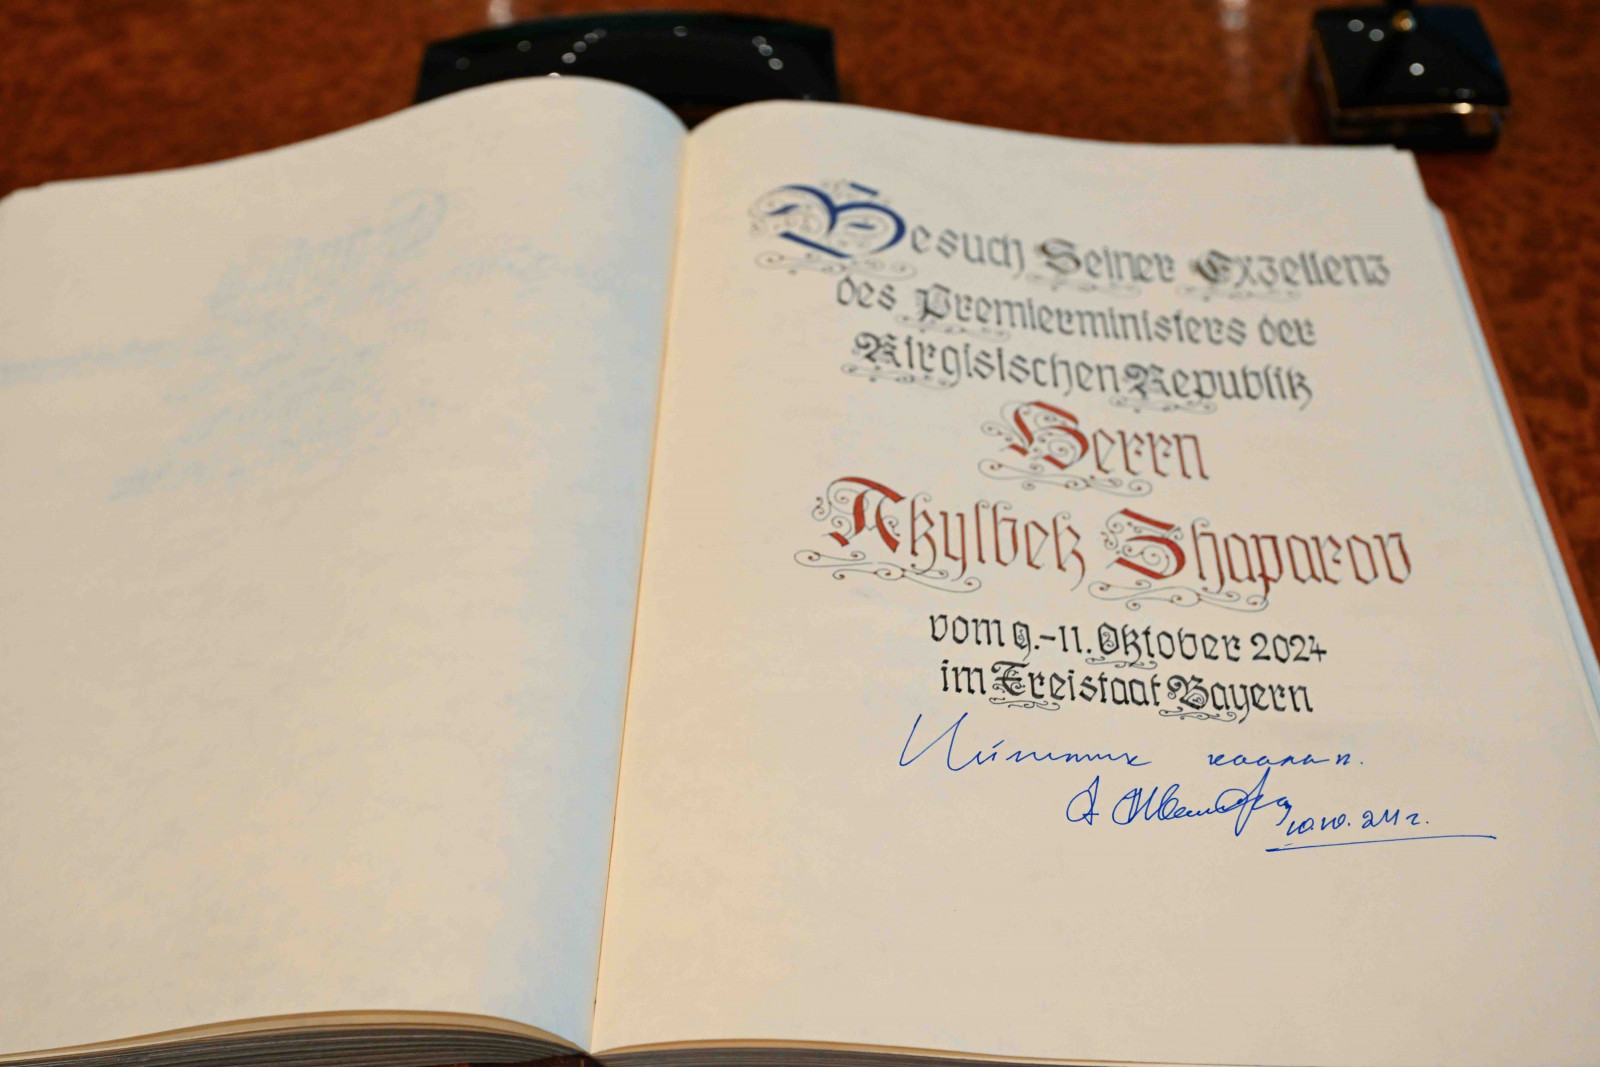 Besuch Seiner Exzellenz
des Premierministers der
Kirgisischen Republik
Herrn
Akylbek Zhaparov
vom 9.-11. Oktober 2024
im Freistaat Bayern
каалайм.
10.10.24 г.